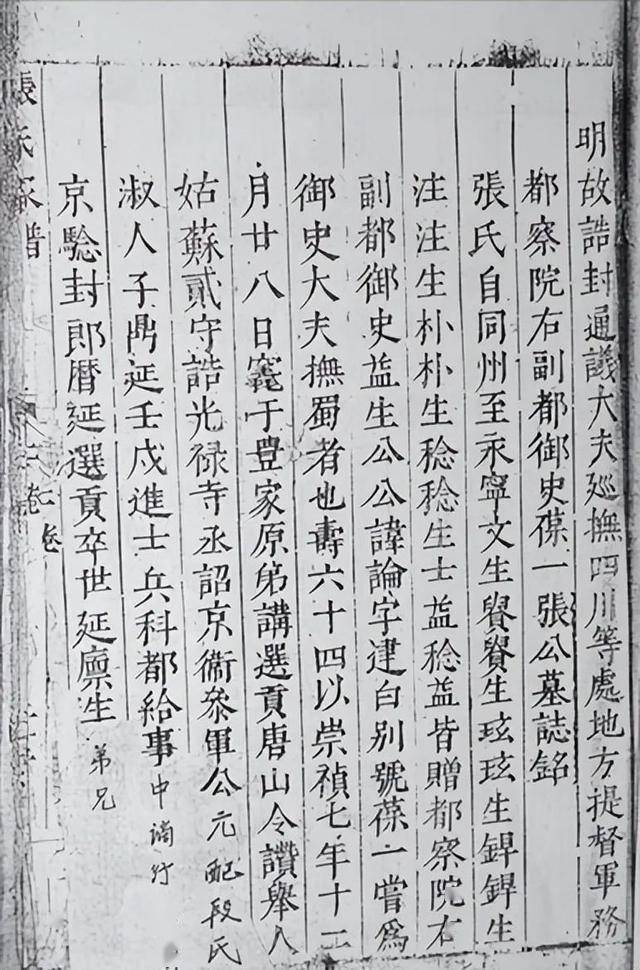 明故誥封通議大夫廵撫四川等處地方提督軍務
都察院右副都御史葆一張公墓誌銘
張氏自同州至永寧文生賢賢生玹玹生銲銲生
注注生朴朴生稔稔生士益稔益皆贈都察院右
副都御史益生公公諱論字建白别號葆一嘗爲
御史大夫撫蜀者也壽六十四以崇禎七年十二
月廿八日窆于豊家原弟講選貢唐山令讚舉人
姑蘇貳守誥光禄寺丞詔京衞叅軍公元配段氏
淑人子鼎延壬戌進士兵科都給事中謫行
京騐封郎曆延選貢卒世延廪生弟兄
張氏家譜
卷